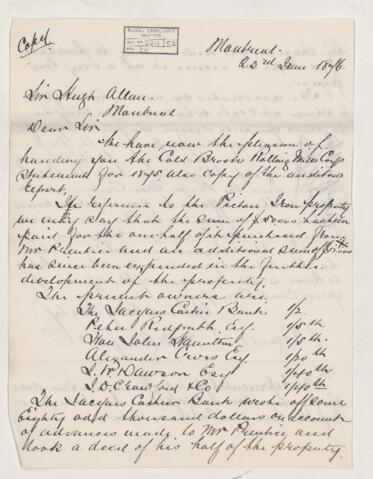 Copy
Montreal.
23rd June 1876.
Sir Hugh Allan.
Montreal
Dear Sir
We have now the pleasure of
handing you the Cold Brook Rolling Mills Co's
Statement for 1875 also copy of the auditors
report,
In reference to the Pictou Iron property
we may say that the sum of $50000 has been
paid for the one half of it purchased from
Mr Runtin and an additional sum of
has since been expended in the further
development of the property.
The present owners are
The Jacques Cartier Bank 1/2.
Peter Redpath, Esq. 1/5th
Hon John Hamilton 1/5th.
Alexander Esq 1/20th
J. W. Dawson Esq 1/40th
J. D. Crawford & Co 1/40th
The Jacques Cartier Bank wrote off some
Eighty odd thousand dollars on account
of advances made to Mr and
took a deed of his half of the property.